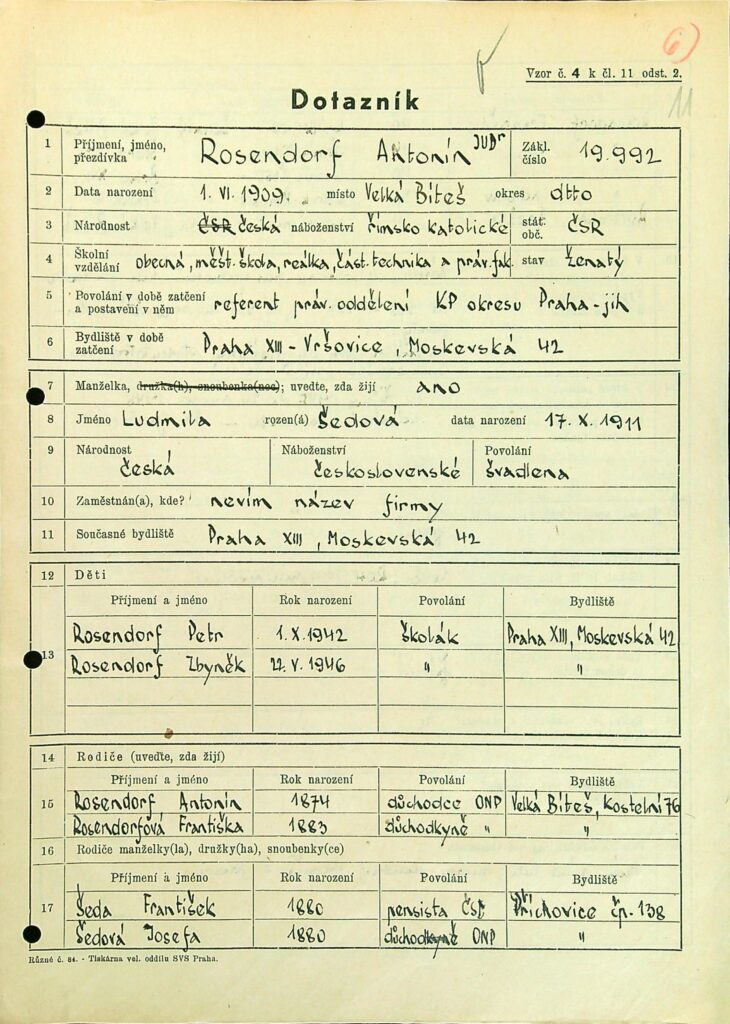 6)
Vzor č. 4 k čl. 11 odst. 2.
11
Dotazník
1 Příjmení, jméno, přezdívka Rosendorf Antonín JUDr Zákl. číslo 19.992
2 Data narození 1. VI. 1909. místo Velká Bíteš okres dtto
3 Národnost ČSR česká náboženství římsko katolické stát. obč. ČSR
4 Školní vzdělání obecná, měšť. škola, reálka, část. technika a práv. fak. stav ženatý
5 Povolání v době zatčení a postavení v něm referent práv. oddělení KP okresu Praha-jih
6 Bydliště v době zatčení Praha XIII - Vršovice, Moskevská 42
7 Manželka, družka(h), snoubenka(nec); uveďte, zda žijí ano
8 Jméno Ludmila rozen(á) Šedová data narození 17. X. 1911
9 Národnost česká Náboženství československé Povolání švadlena
10 Zaměstnán(a), kde? nevím název firmy
11 Současné bydliště Praha XIII, Moskevská 42
12 Děti
Příjmení a jméno Rok narození Povolání Bydliště
13 Rosendorf Petr 1. X. 1942 školák Praha XIII, Moskevská 42
Rosendorf Zbyněk 22. V. 1946 " "
14 Rodiče (uveďte, zda žijí)
Příjmení a jméno Rok narození Povolání Bydliště
15 Rosendorf Antonín 1874 důchodce ONP Velká Bíteš, Kostelní 76
Rosendorfová Františka 1883 důchodkyně " "
16 Rodiče manželky(la), družky(ha), snoubenky(ce)
Příjmení a jméno Rok narození Povolání Bydliště
17 Šeda František 1880 pensista ČSD Příchovice čp. 138
Šedová Josefa 1880 důchodkyně ONP "
Různé č. 84. - Tiskárna vel. oddílu SVS Praha.